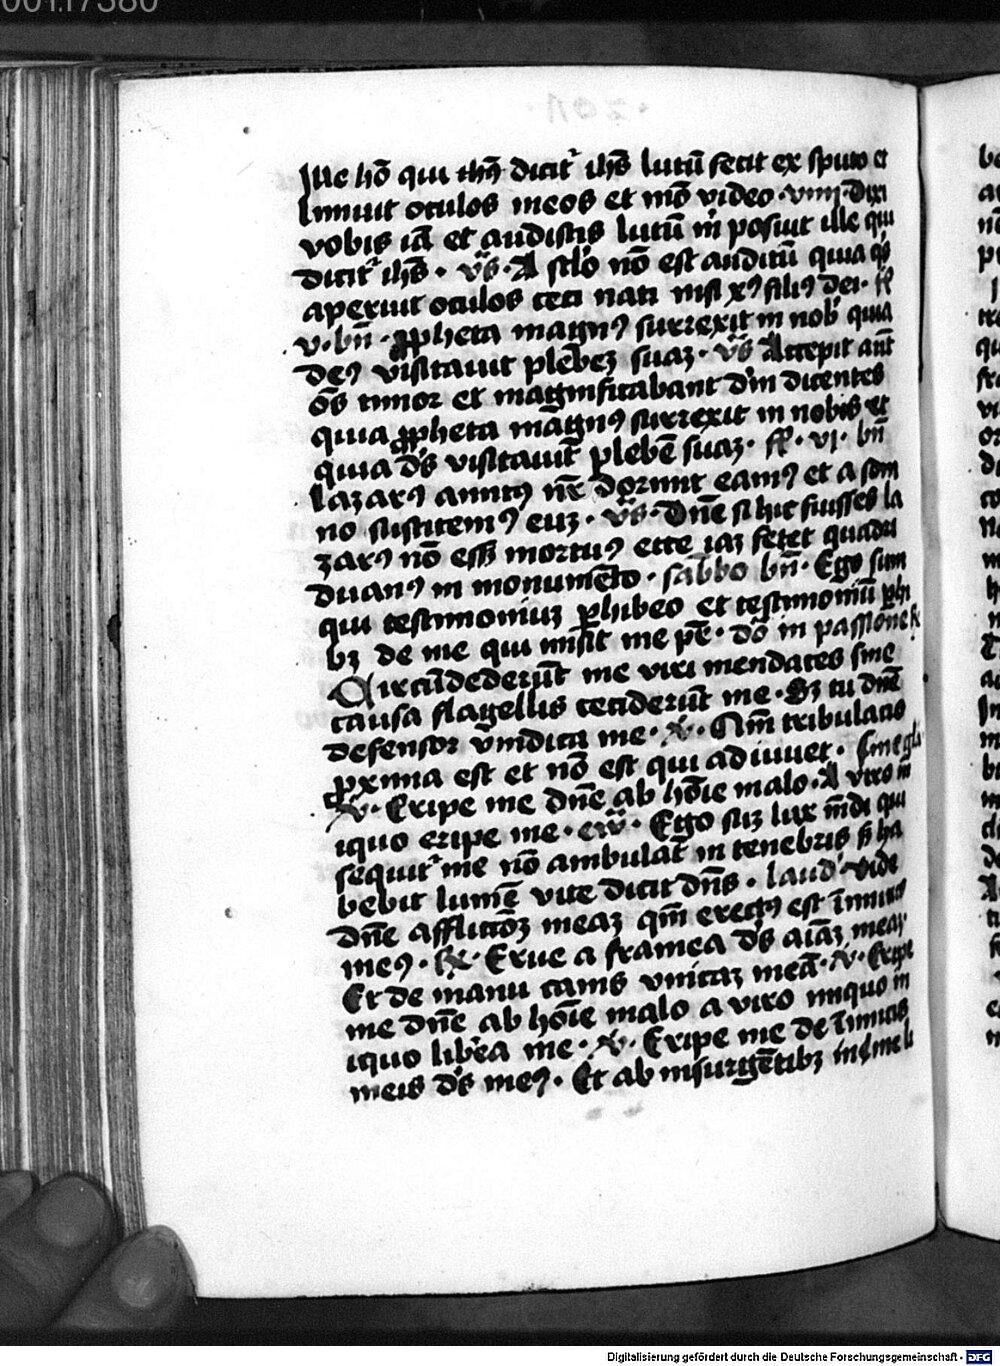 00117380
Ille hō qui ihū dicit᷑ ihs̄ lutū fecit ex sputo et
linniuit oculos meos et mō video · viiij · Dixi
vobis iā et audistis lutū m̄ posuit ille qui
dicit᷑ ihs̄ · v̄s · A sclo nō est auditū quia qs̄
aperuit oculos ceci nati nisi xꝰ filiꝰ dei · fr̄
v · bn̄ · ꝓpheta magnꝰ surrexit in nob quia
deꝰ visitauit plebeꝫ suaꝫ · v̄s Accepit aūt
ōs timor et magnificabant dn̄m dicentes
quia ꝓpheta magnꝰ surrexit in nobis et
quia ds̄ visitauit plebē suaꝫ · fr̄ · vj · bn̄
Lazarꝰ amicꝰ nr̄ dormit eamꝰ et a som
no suscitemꝰ euꝫ · v̄s · Dn̄e si hic fuisses la
zarꝰ nō ess̄ mortuꝰ ecce iaꝫ fetet quadri
duanꝰ in monumēto · sabbo bn̄ · Ego sum
qui testimoniuꝫ ꝑhibeo et testimoniū ꝑhi
bꝫ de me qui misit me pr̄ · dō in passione
Circūdederūt me viri mendaces sine
causa flagellis ceciderūt me · Sꝫ tu dn̄e
defensor vindica me · v̄ · Qm̄ tribulacio
ꝓxima est et nō est qui adiuuet · sine gli
v̄ · Eripe me dn̄e ab hōie malo · A viro in
iquo eripe me · ew̄ · Ego suꝫ lux mūdi qui
sequit᷑ me nō ambulat̄ in tenebris sꝫ ha
bebit lumē vite dicit dn̄s · laud · Vide
dn̄e afflictōꝫ meaꝫ qm̄ erectꝰ est inimicꝰ
meꝰ · Erue a framea ds̄ aīaꝫ meaꝫ
Et de manu canis vnicaꝫ meā · v̄ · Eripe
me dn̄e ab hōie malo a viro iniquo in
iquo libea me · v̄ · Eripe me de inimicis
meis ds̄ meꝰ · Et ab insurgētibꝫ in me li
Digitalisierung gefördert durch die Deutsche Forschungsgemeinschaft - DFG